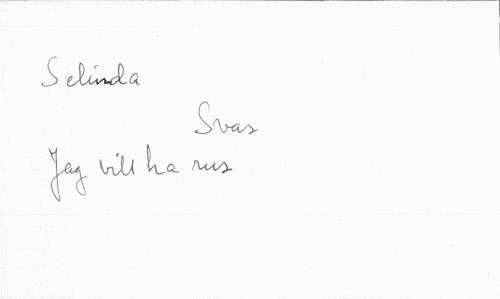 Selinda
Svar
Jag vill ha rus